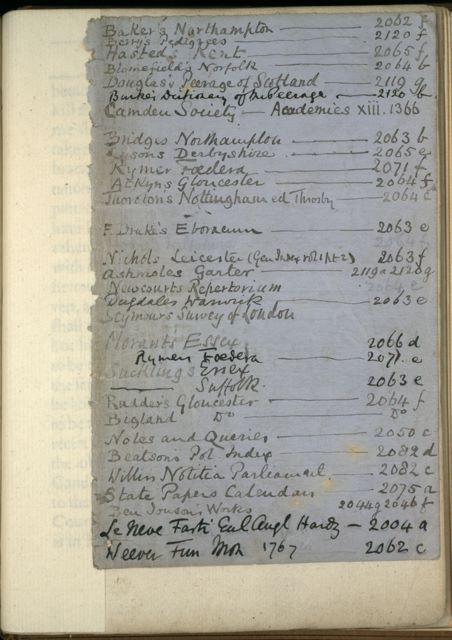 Baker's Northampton — 2062 f
Berry's Pedigrees — 2120 f
Hasted's Kent — 2065 f
Blomefield's Norfolk — 2064 b
Douglas's Peerage of Scotland — 2119 g
Burke's Dictionary of Peerage — 2120 b
Camden Society — Academies xiii. 1366
Bridges Northampton — 2063 b
Lysons Derbyshire — 2065 e
Rymer Foedera — 2071 f
Atkyns Gloucester — 2064 f
Thorotons Nottingham ed Throsby — 2064 c
F. Drake's Eboracum — 2063 e
Nichols Leicester (Gen Index vol 1 pt 2) 2063 f
Ashmoles Garter — 2119a 2120g
Newcourts Repertorium 2064 e
Dugdales Warwick — 2063 e
Seymours Survey of London
Morants Essex — 2066 d
Rymers Foedera — 2071. e
Sucklings Essex
— Suffolk. 2063 e
Rudder's Gloucester — 2064 f
Bigland Do — Do
Notes and Queries — 2050 c
Beatsons Pol. Index — 2082 d
Willis Notitia Parliament — 2082 c
State Papers Calendars — 2075 a
Ben Jonson's Works 2044g 2046 f
Le Neve Fasti Eccl Angl Hardy — 2004 a
Weever Fun Mon 1767 — 2062 c